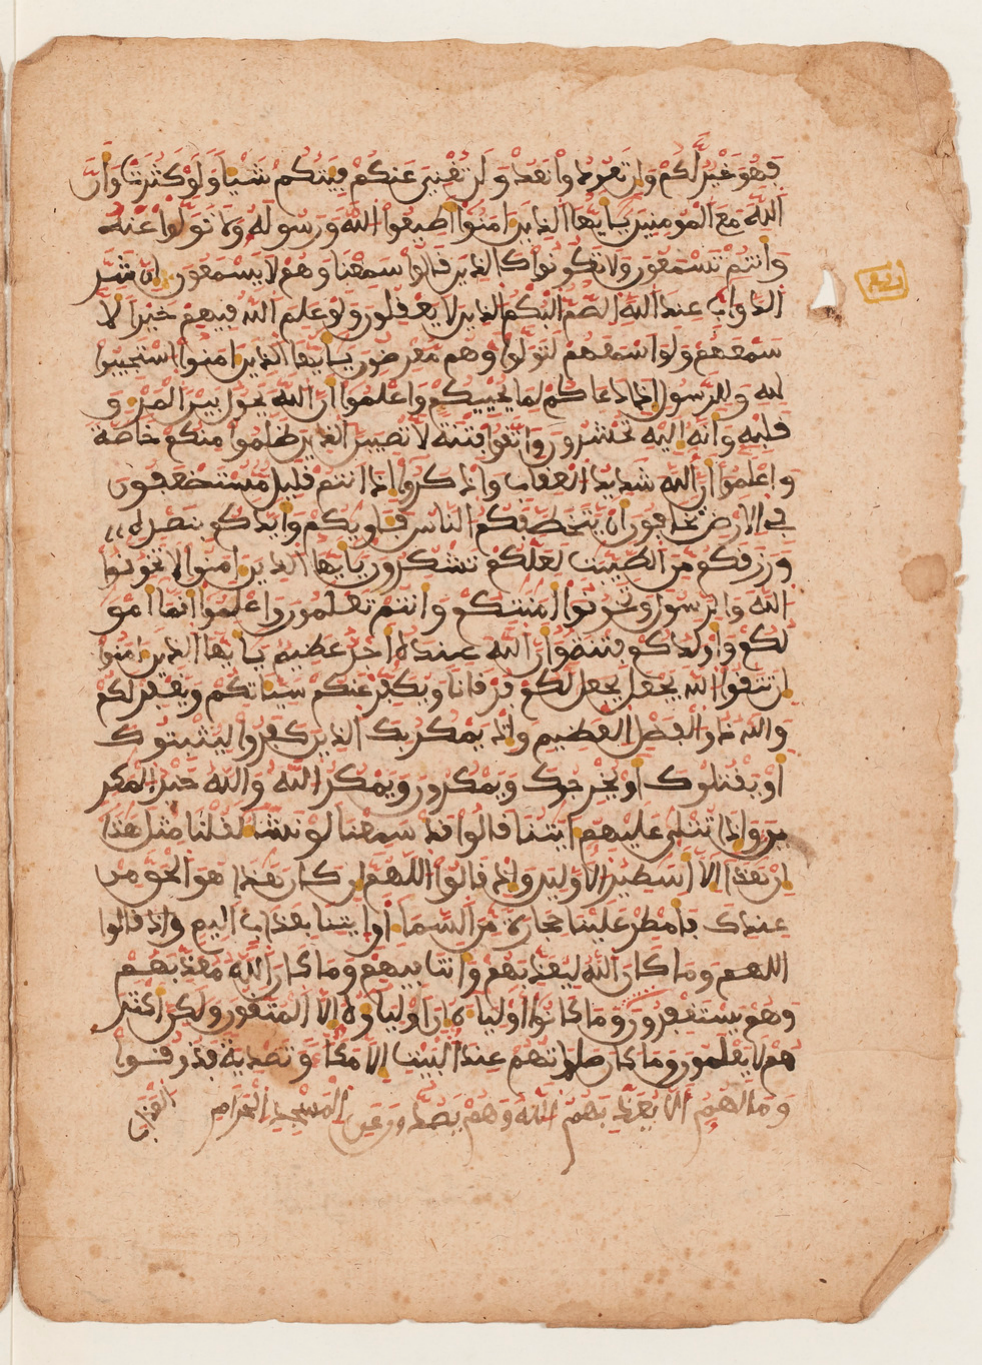 فهو خير لكم وان تعودوا نعد ولن تغني عنكم فيتكم شيا ولو كثرت وان
الله مع المومنين يايها الذين امنوا اطيعوا الله ورسوله ولا تولوا عنه
وانتم تسمعون ولا تكونوا كالذين قالوا سمعنا وهم لا يسمعون ان شر
الدواب عند الله الصم البكم الذين لا يعقلون ولو علم الله فيهم خيرا لا
سمعهم ولو اسمعهم لتولوا وهم معرضون يايها الذين امنوا استجيبوا
لله وللرسول اذا دعاكم لما يحييكم واعلموا ان الله يحول بين المرء و
قلبه وانه اليه تحشرون واتقوا فتنة لا تصيبن الذين ظلموا منكم خاصة
واعلموا ان الله شديد العقاب واذكروا اذ انتم قليل مستضعفون
في الارض تخافون ان يتخطفكم الناس فاويكم وايدكم بنصره
ورزقكم من الطيبت لعلكم تشكرون يايها الذين امنوا لا تخونوا
الله والرسول وتخونوا امنتكم وانتم تعلمون واعلموا انما امو
لكم واولدكم فتنة وان الله عنده اجر عظيم يايها الذين امنوا
ان تتقوا الله يجعل يجعل لكم فرقانا ويكفر عنكم سياتكم ويغفر لكم
والله ذو الفضل العظيم واذ يمكر بك الذين كفروا ليثبتوك
او يقتلوك او يخرجوك ويمكرون ويمكر الله والله خير المكر
ين واذا تتلى عليهم ايتنا قالوا قد سمعنا لو نشاء لقلنا مثل هذا
ان هذا الا اسطير الاولين واذ قالوا اللهم ان كان هذا هو الحق من
عندك فامطر علينا حجارة من السماء او ايتنا بعذاب اليم واذ قالوا
اللهم وما كان الله ليعذبهم وانت فيهم وما كان الله معذبهم
وهم يستغفرون وما كانوا اولياءه ان اولياوه الا المتقون ولكن اكثر
هم لا يعلمون وما كان صلاتهم عند البيت الا مكاء وتصدية فذوقوا
وما لهم الا يعذبهم الله وهم يصدون عن المسجد الحرام